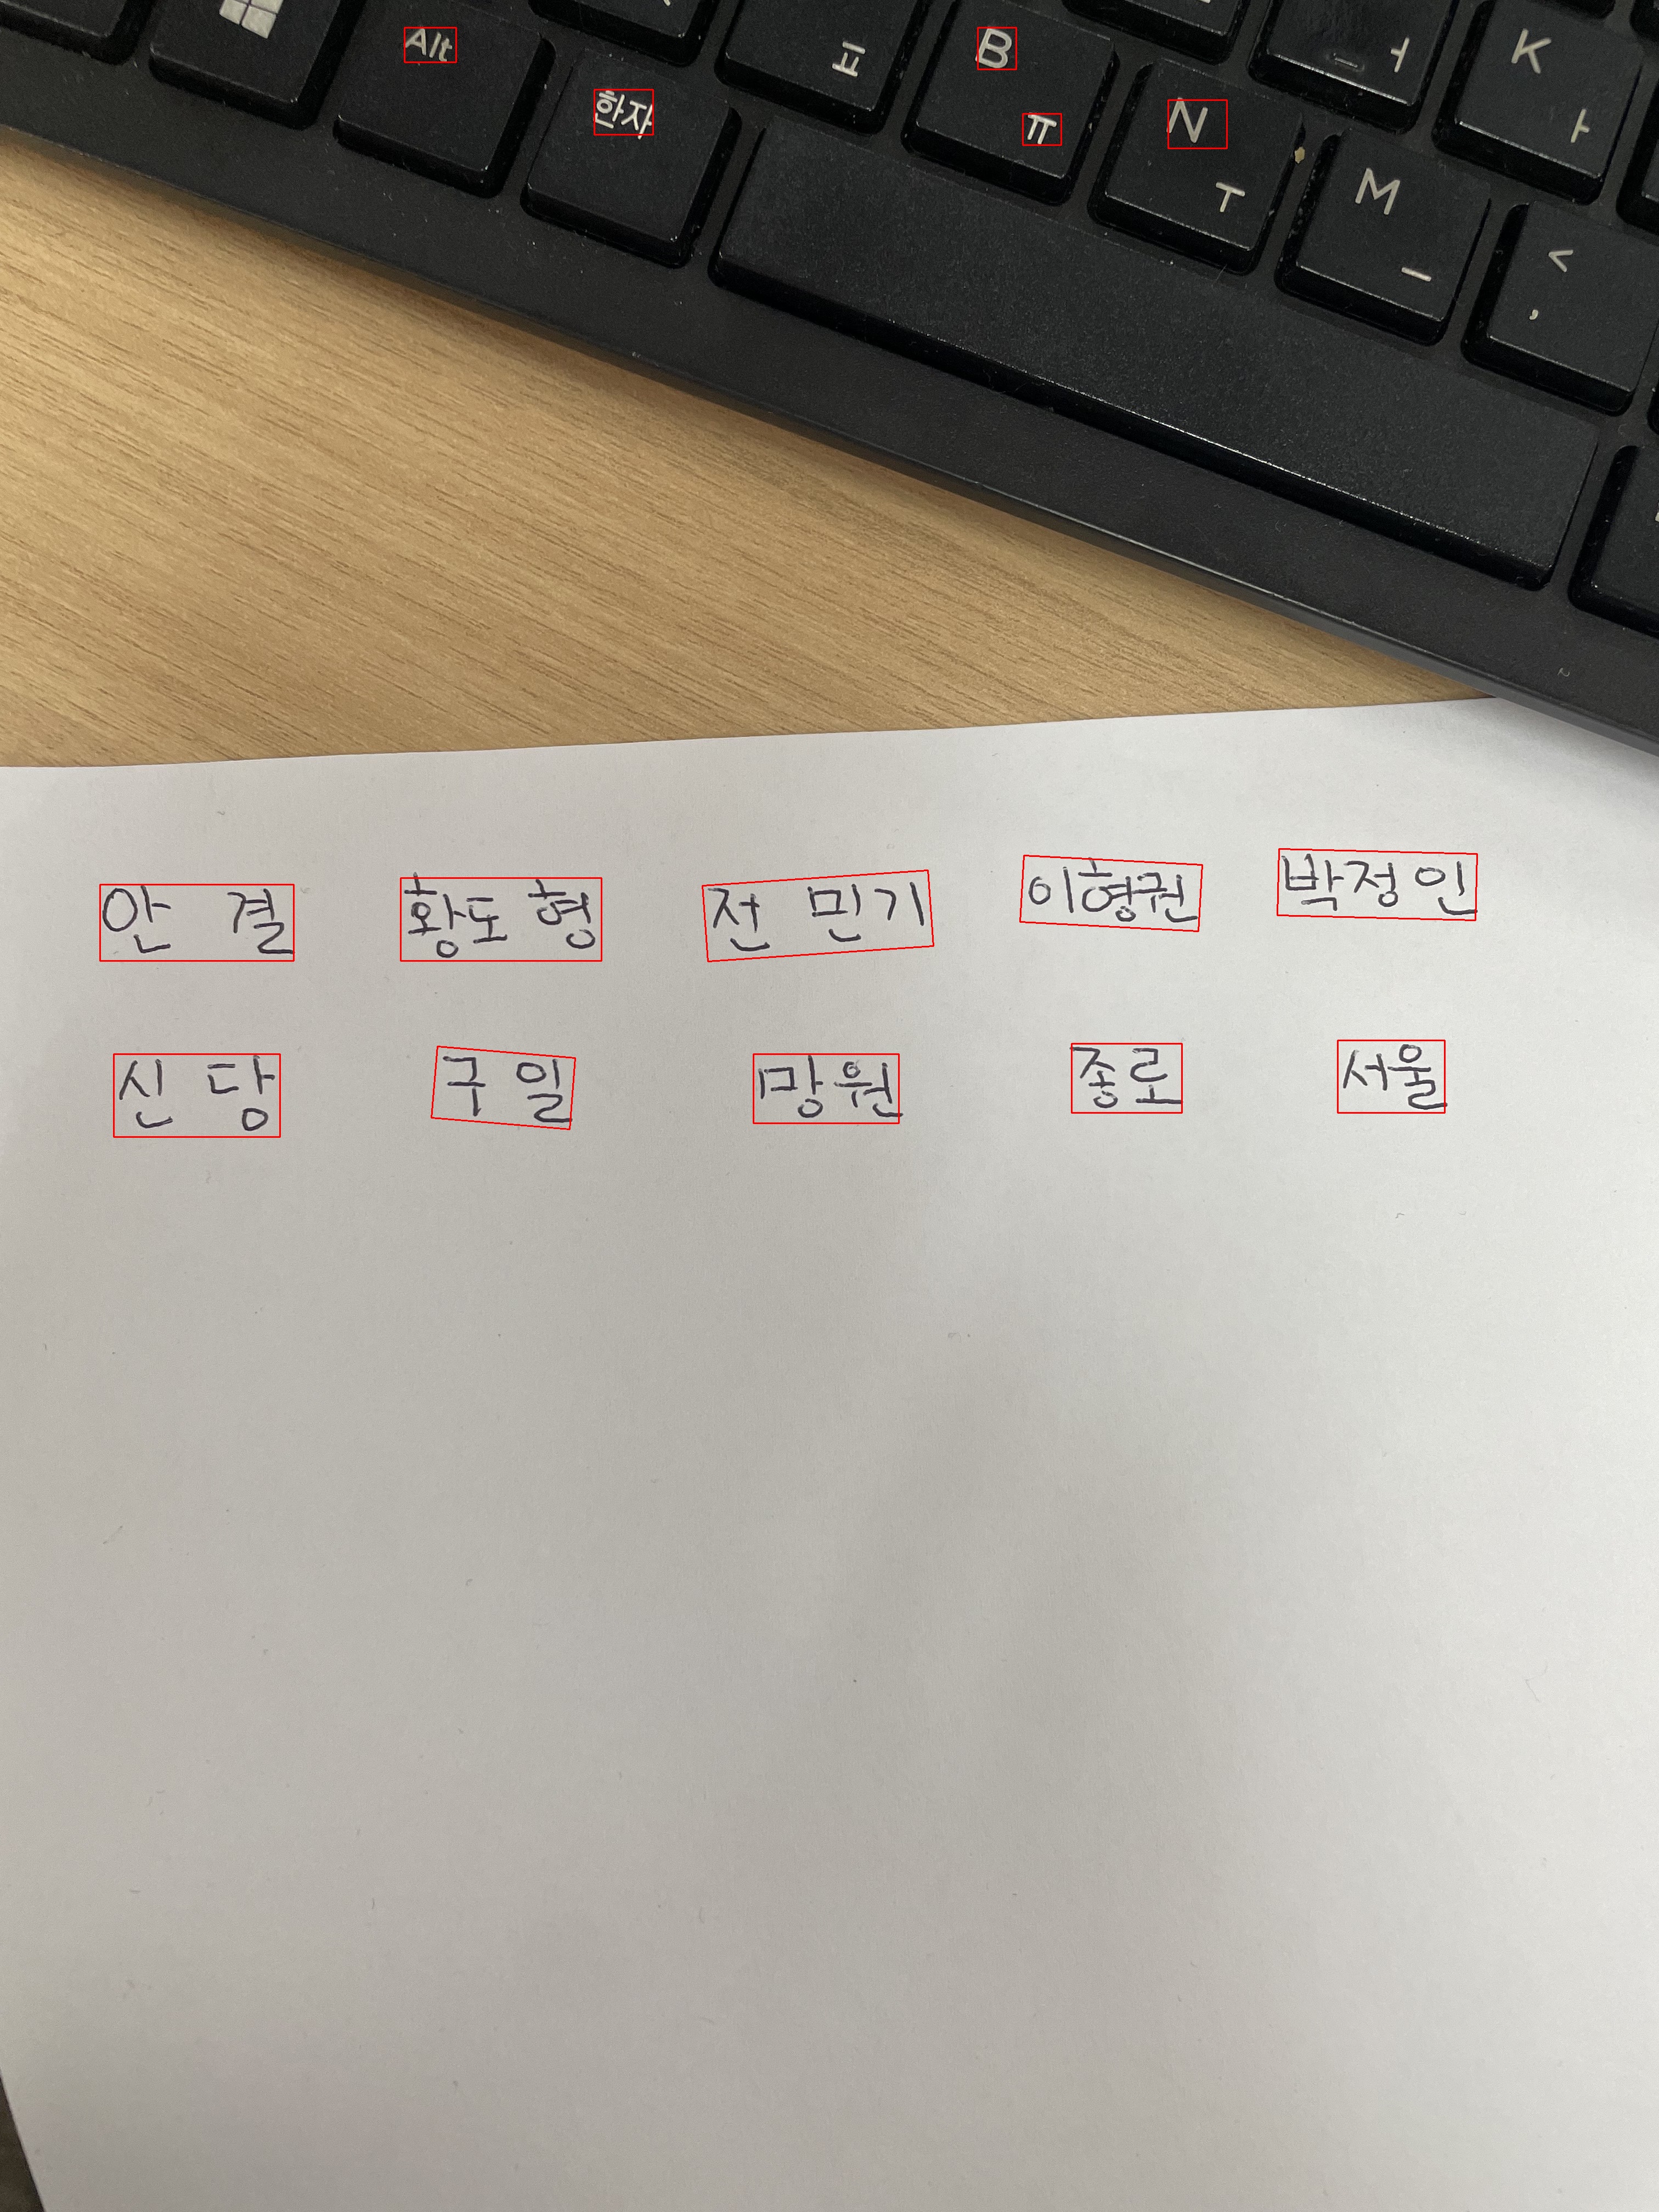 Alt
한자
ㅍ
B
ㅠ
N
ㅜ
ㅓ
M
ㅡ
K
ㅏ
<
,
안 결 황도형 전 민기 이형권 박정인
신 당 구 일 망원 종로 서울